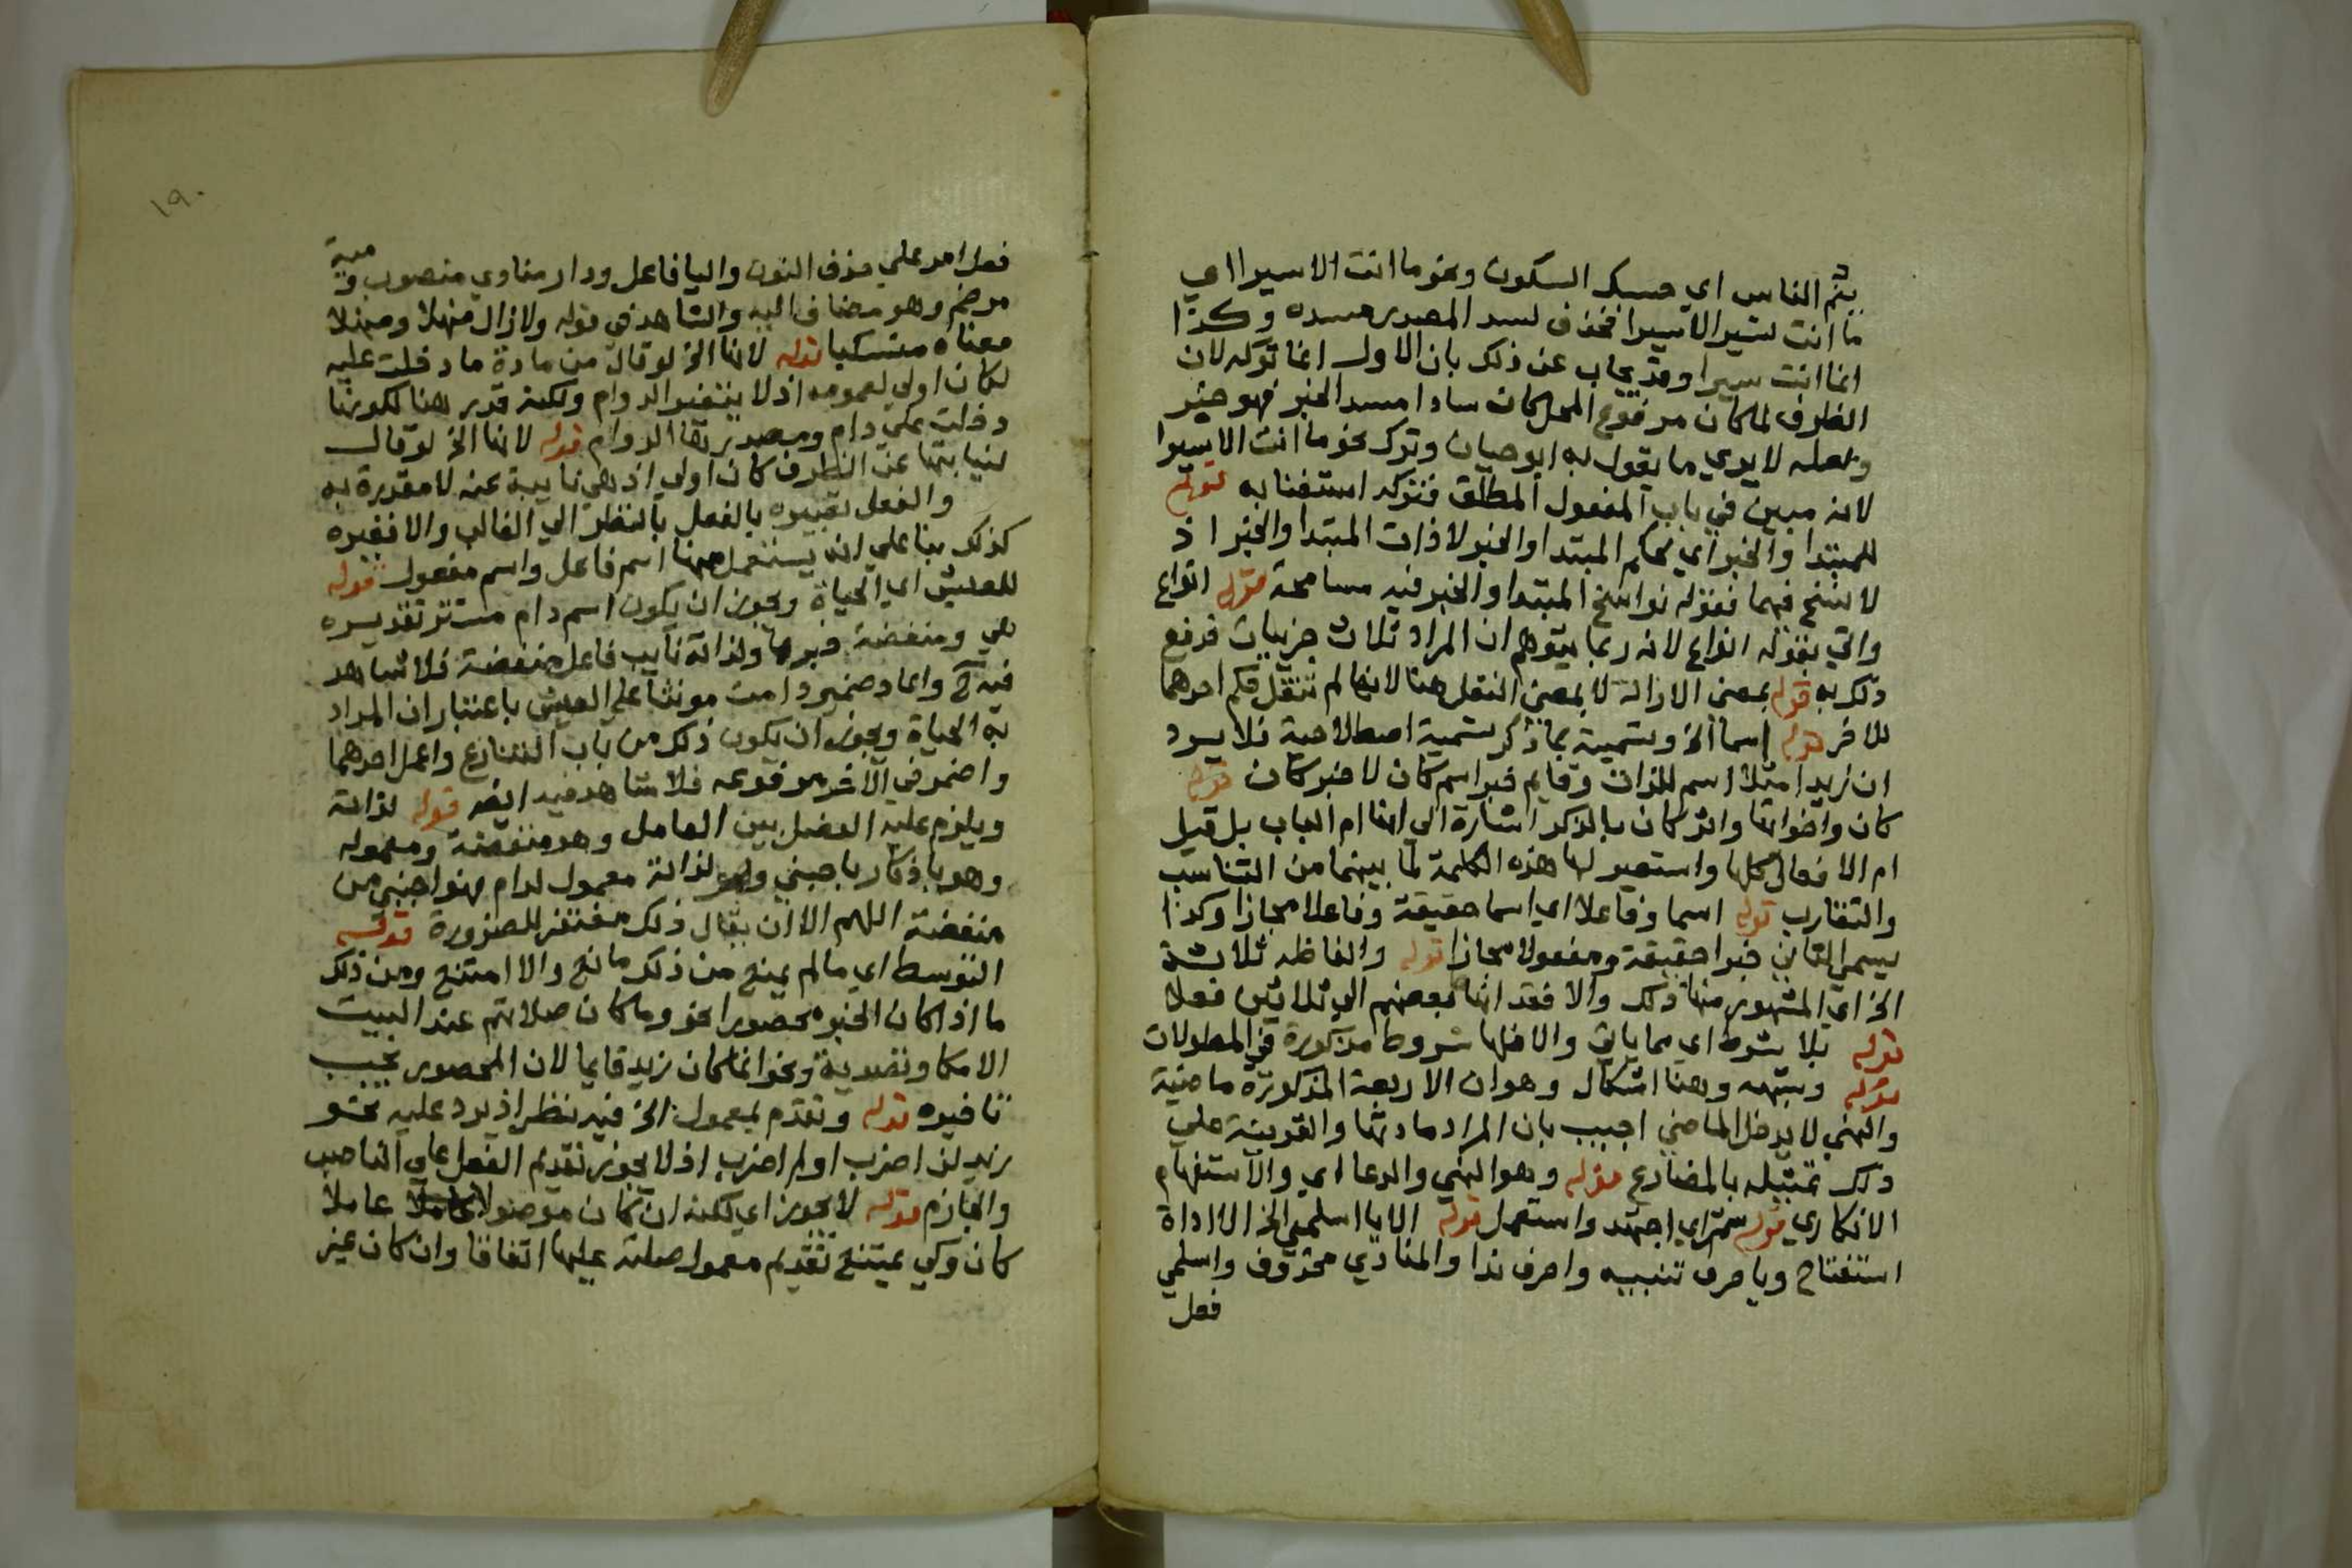 ينم الناس اي حسبك السكون ونحو ما انت الا سيرا اي
ما انت تسير الا سيرا فحذف لسد المصدر مسده وكذا
انما انت سيرا وقد يجاب عن ذلك بان الاول انما تركه لان
الظرف لما كان مرفوع المحل كان سادا مسد الخبر فهو خبر
ولعله لا يري ما يقول به ابو حيان وترك نحو ما انت الا سيرا
لانه مبين في باب المفعول المطلق فتركه استغنا به قوله
للمبتدا والخبر اي لحكم المبتدا والخبر لا ذات المبتدا والخبر اذ
لا نسخ فيهما فقوله نواسخ المبتدا والخبر فيه مسامحة قوله انواع
واتي بقوله انواع لانه ربما يتوهم ان المراد ثلاث جزييات فرفع
ذلك به قوله بمعني الازالة لا بمعني النقل هنا لانها لم تنقل حكم احدهما
للاخر قوله اسما الخ وتسمية بما ذكر تسمية اصطلاحية فلا يرد
ان زيدا مثلا اسم للذات وقايم خبر اسم كان لا خبر كان قوله
كان واخواتها واثر كان بالذكر اشارة الي انها ام الباب بل قيل
ام الافعال كلها واستعير لها هذه الكلمة لما بينهما من التناسب
والتقارب قوله اسما وفاعلا اي اسما حقيقة وفاعلا مجازا وكذا
يسمي الثاني خبرا حقيقة ومفعولا مجازا قوله والفاظه ثلاثة
الخ اي المشهور منها ذلك والا فقد انها بعضهم الي ثلاثين فعلا
قوله بلا شرط اي مما ياتي والا فلها شروط مذكورة في المطولات
قوله وشبهه وهنا اشكال وهو ان الاربعة المذكورة ماضية
والنهي لا يدخل الماضي اجيب بان المراد مادتها والقرينة علي
ذلك تمثيله بالمضارع قوله وهو النهي والدعا اي والاستفهام
الانكاري قوله شمر اي اجتهد واستعمل قوله الا يا اسلمي الخ الا اداة
استفتاح ويا حرف تنبيه واحرف ندا والمنادي محذوف واسلمي
فعل
١٩٠
فعل امر علي حذف النون واليا فاعل ودار منادي منصوب و مية
مرخم وهو مضاف اليه والشاهد في قوله ولا زال منهلا ومنهلا
معناه منسكبا قوله لانها الخ لو قال من مادة ما دخلت عليه
لكان اولي لعمومه اذ لا يتقيد بالدوام ولكنه قدر هنا لكونها
دخلت علي دام ومصدرها الدوام قوله لانها الخ لو قال
لنيابتها عن الظرف كان اولي اذ هي نايبة عنه لا مقدرة به
والفعل تعبيره بالفعل بالنظر الي الغالب والا فغيره
كذلك بنا علي انه يستعمل منها اسم فاعل واسم مفعول قوله
للعيش اي الحياة ويجوز ان يكون اسم دام مستتر تقديره
هي ومنغصة خبرها ولذاته نايب فاعل منغصة فلا شاهد
فيه ح واعاد ضمير دامت مونثا علي العيش باعتبار ان المراد
به الحياة ويجوز ان يكون ذلك من باب التنازع واعمل احدهما
واضمر في الاخر مرفوعه فلا شاهد فيه ايضه قوله لذاته
ويلزم عليه الفصل بين العامل وهو منغصة ومعموله
وهو باذكار باجنبي وهو لذاته معمول لدام فهو اجنبي من
منغصة اللهم الا ان يقال ذلك مغتفر للضرورة قوله
التوسط اي ما لم يمنع من ذلك مانع والا امتنع ومن ذلك
ما اذا كان الخبر محصورا نحو وما كان صلاتهم عند البيت
الا مكا وتصدية ونحو انما كان زيد قايما لان المحصور يجب
تاخيره قوله وتقدم بمعمول الخ فيه نظر اذ يرد عليه نحو
زيد لن اضرب او لم اضرب اذ لا يجوز تقديم الفعل علي الناصب
والجازم قوله لا يجوز اي لكنه ان كان موصولا عاملا
كان وكي يمتنع تقديم معمول صلته عليها اتفاقا وان كان غير